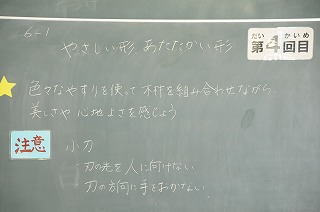 6-1
やさしい形、あたたかい形
だい かいめ
第4回目
色々なやすりを使って木材を組み合わせながら、
美しさや心地よさを感じよう
注意
小刀
・刃の先を人に向けない
刃の方向に手をおかない